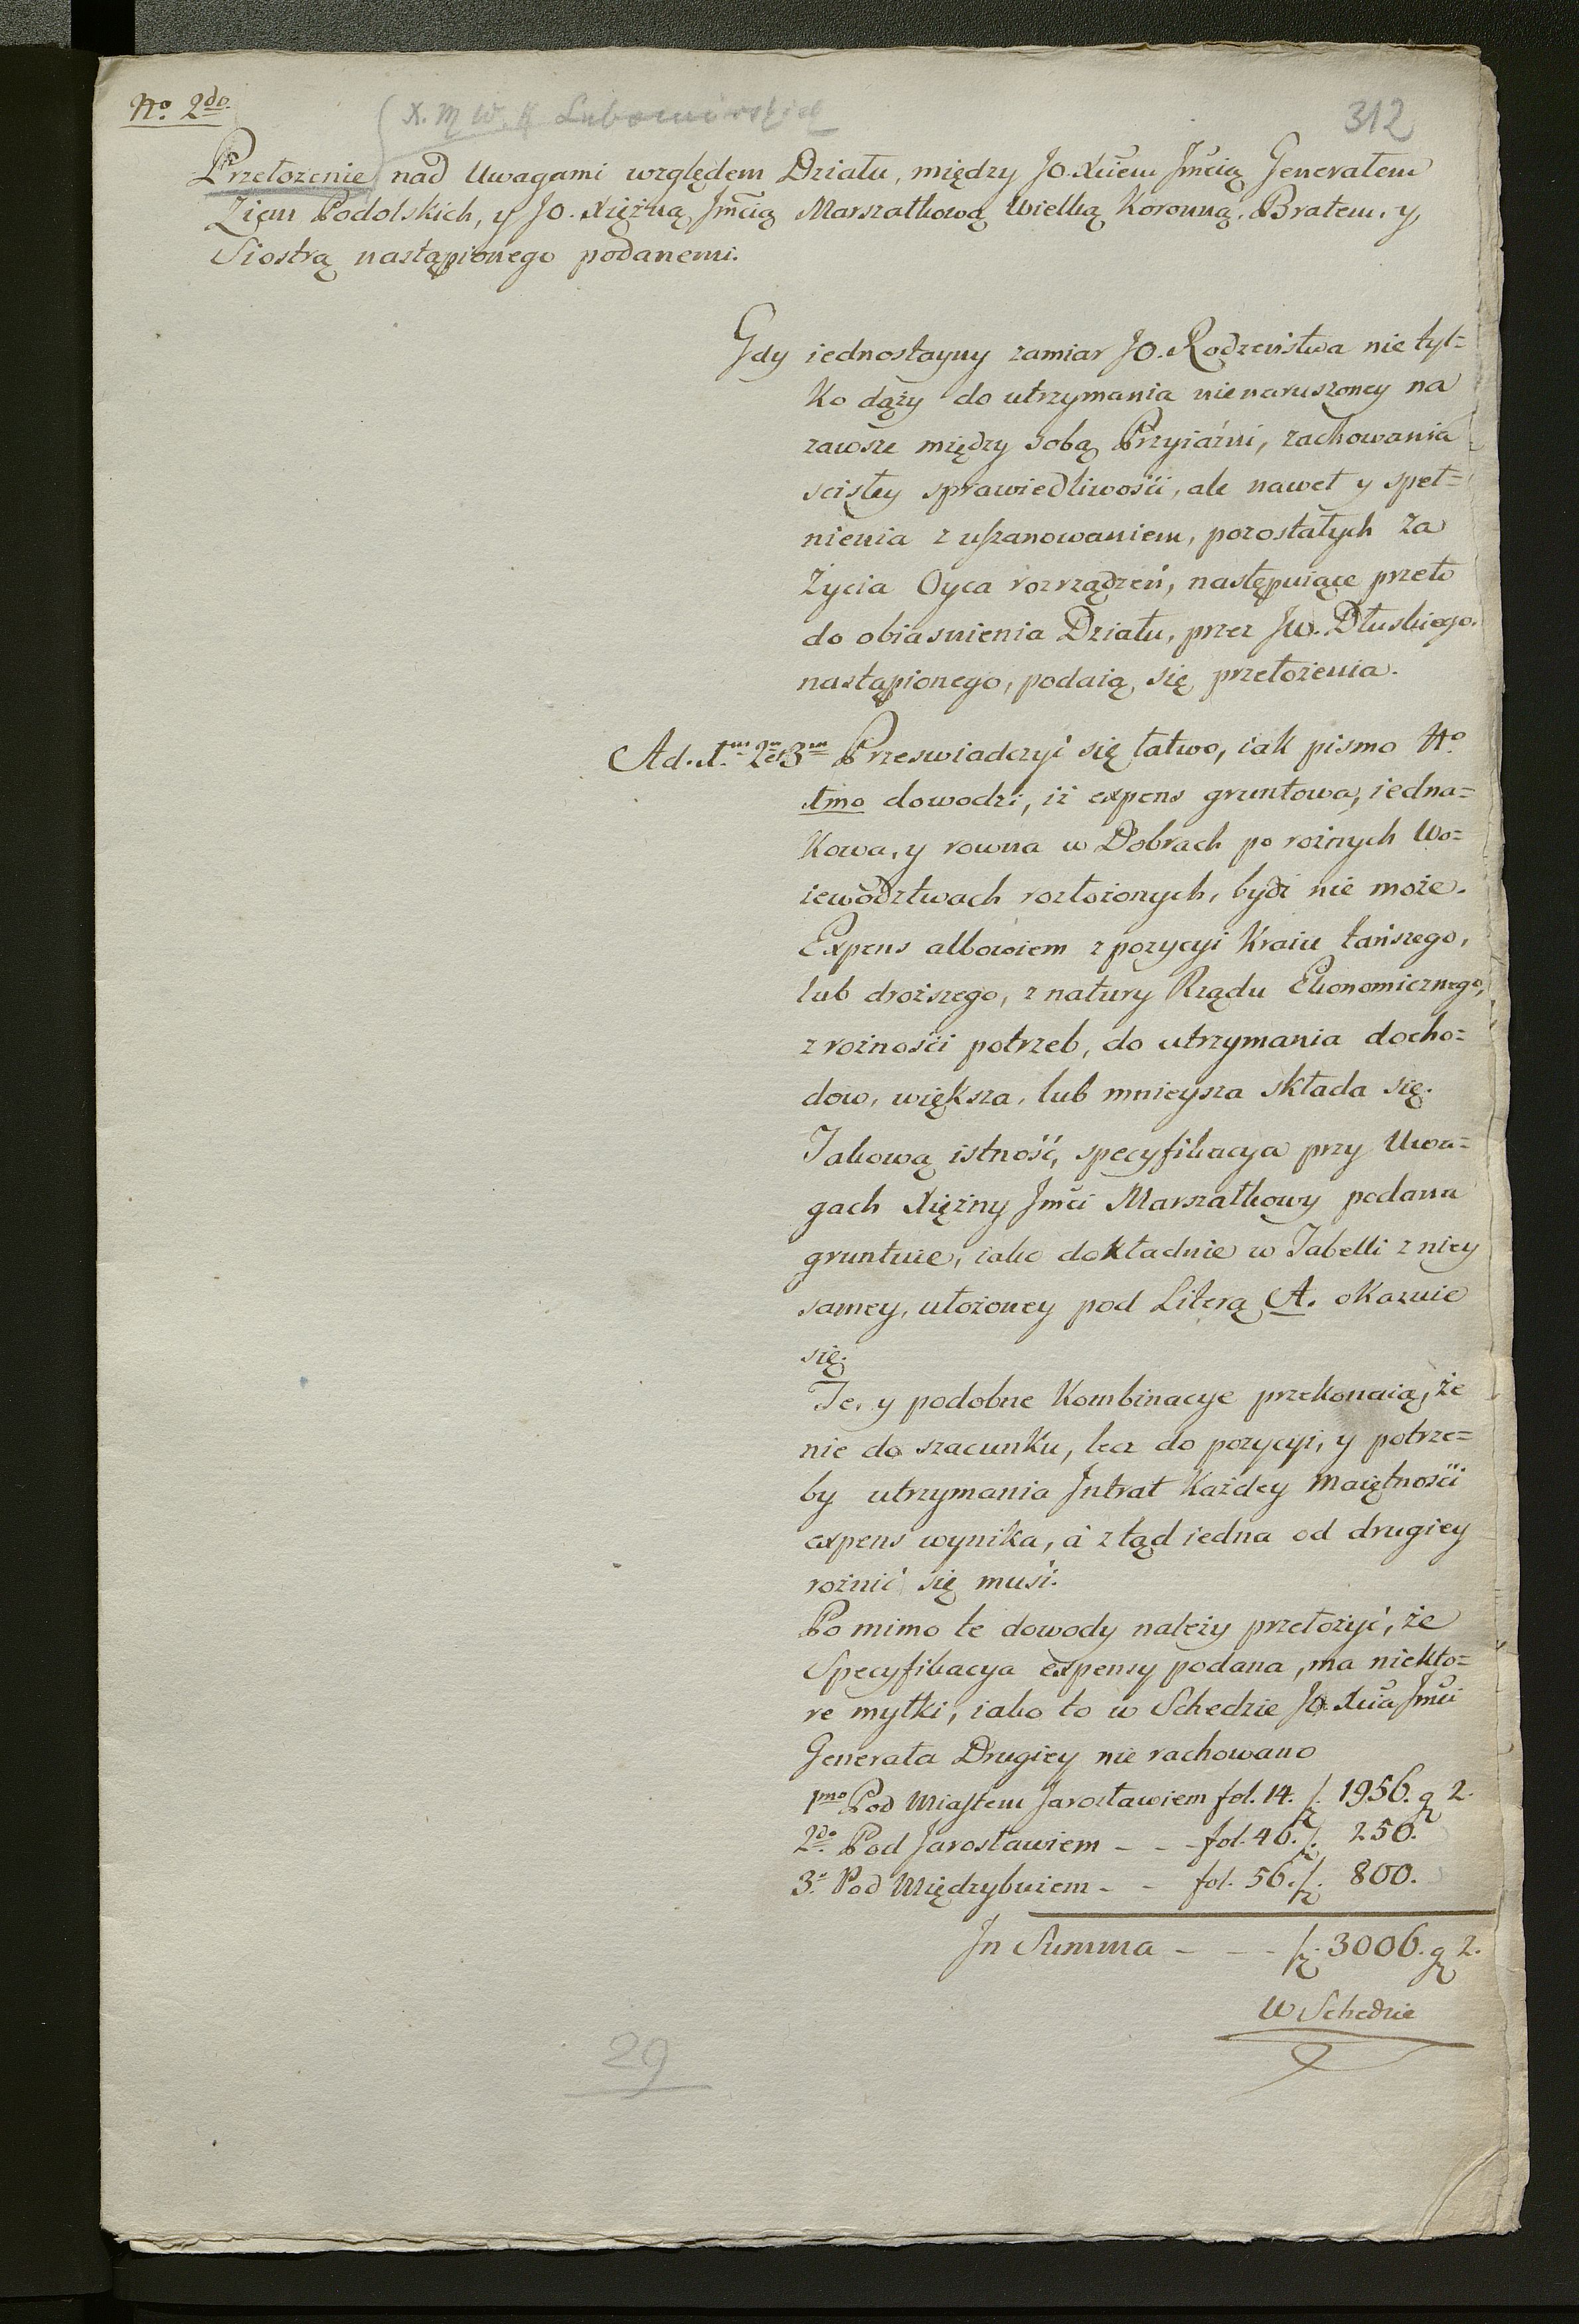 No. 2do.
(X. M W. K Lubomirskiej
312
Przełożenie nad Uwagami względem Działu, między JO. Xciem Jmcią Generałem
Ziem Podolskich, y JO. Xiężną Jmcią Marszałkową Wielką Koronną, Bratem, y
Siostrą nastąpionego podanemi.
Gdy iednostayny zamiar JO. Rodzeństwa nie tyl=
ko dąży do utrzymania nienaruszoney na
zawsze między sobą Przyiaźni, zachowania
scisłey sprawiedliwości, ale nawet y speł=
nienia z uszanowaniem, pozostałych za
Życia Oyca rozrządzeń, następuiące przeto
do obiasnienia Działu, przez JW. Dłuskiego
nastąpionego, podaią się przełożenia.
Ad. 1m 2m et 3m Przeswiadczyć się łatwo, iak pismo No
1mo dowodzi, iż expens gruntowa, iedna=
kowa, y rowna w Dobrach po rożnych Wo=
iewodztwach rozłożonych, bydź nie może.
Expens albowiem z pozycyi Kraiu tańszego,
lub droższego, z natury Rządu Ekonomicznego,
z rożności potrzeb, do utrzymania docho=
dow, większa, lub mnieysza składa się.
Takową istność, specyfikacya przy Uwa=
gach Xiężny Jmci Marszałkowy podana
gruntuie, iako dokładnie w Tabelli z niey
samey, ułożoney pod Literą A. okazuie
się.
Te, y podobne Kombinacye przekonaią, że
nie do szacunku, lecz do pozycyi, y potrze=
by utrzymania Intrat Każdey Maiętności
expens wynika, a ztąd iedna od drugiey
rożnić się musi.
Po mimo te dowody należy przełożyć, że
Specyfikacya expensy podana, ma niekto=
re myłki, iako to w Schedzie JO. Xcia Jmci
Generała Drugiey nie rachowano
1mo Pod Miastem Jarosławiem fol. 14. f. 1956. g 2.
2do. Pod Jarosławiem - - fol. 46. f. 250.
3o. Pod Międzybużem - - fol. 56. f. 800.
In Summa - - - f. 3006. g 2.
W Schedzie
29